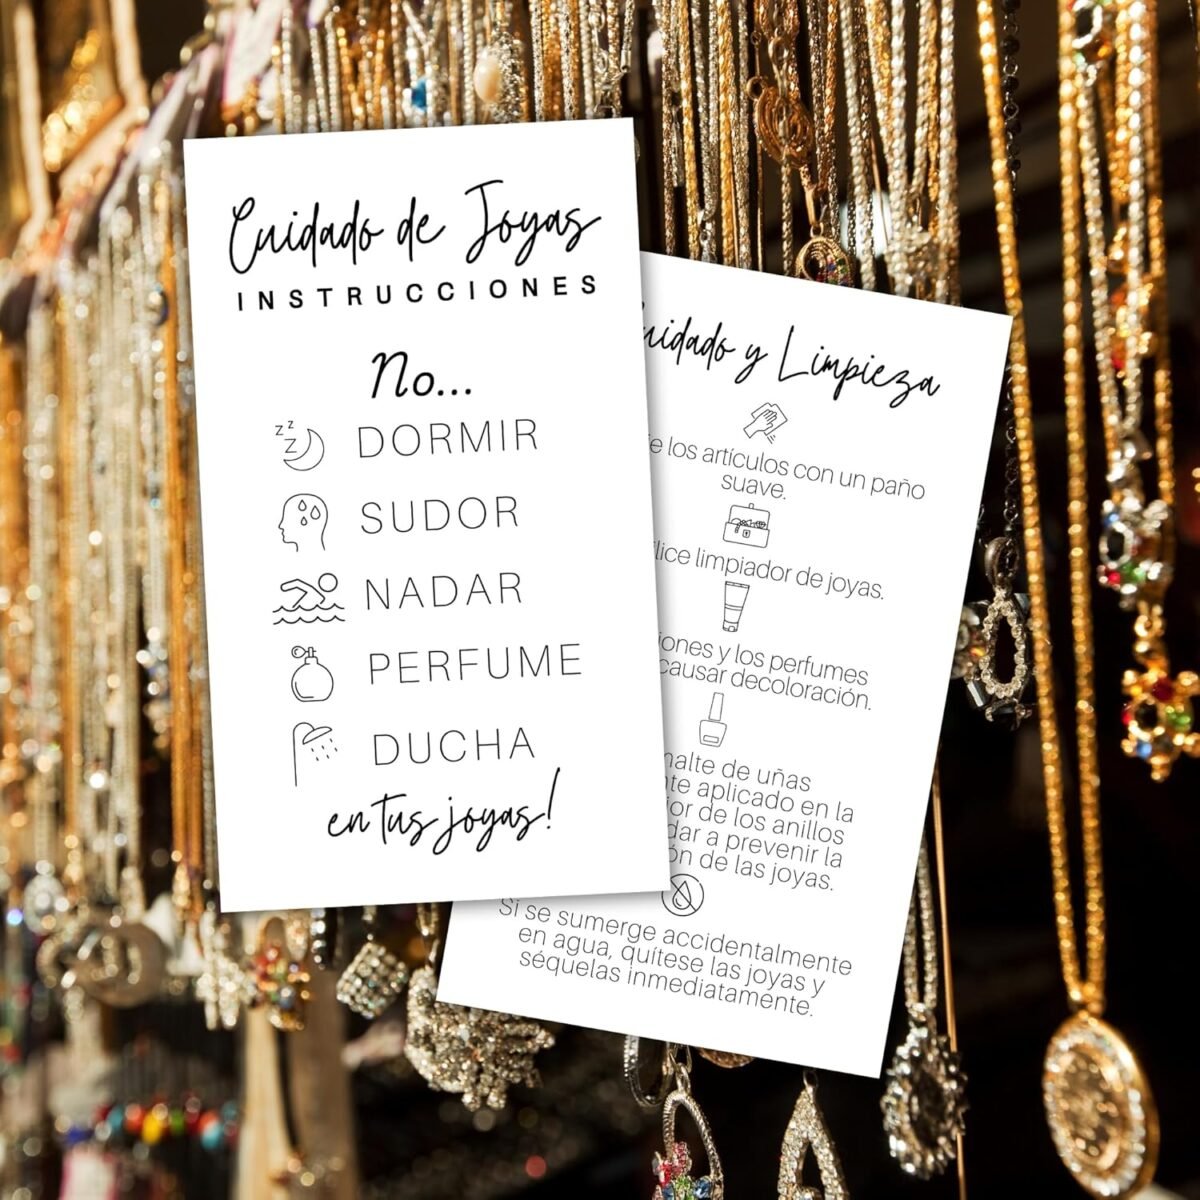 Cuidado de Joyas
INSTRUCCIONES
No...
z z z
DORMIR
SUDOR
NADAR
PERFUME
DUCHA
en tus joyas!
y Limpieza
los artículos con un paño
suave.
limpiador de joyas.
y los perfumes
causar decoloración.
de uñas
aplicado en la
de los anillos
a prevenir la
de las joyas.
Si se sumerge accidentalmente
en agua, quítese las joyas y
séquelas inmediatamente.